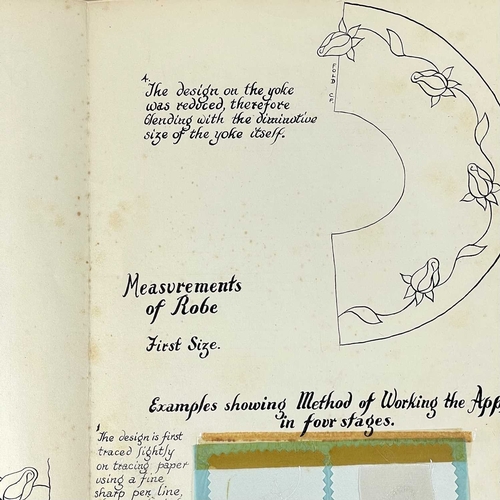 4.
The design on the yoke
was reduced, therefore
blending with the diminutive
size of the yoke itself.
Measurements
of Robe
First Size.
Examples showing Method of Working the App
in four stages.
1
The design is first
traced lightly
on tracing paper
using a fine
sharp pen line,